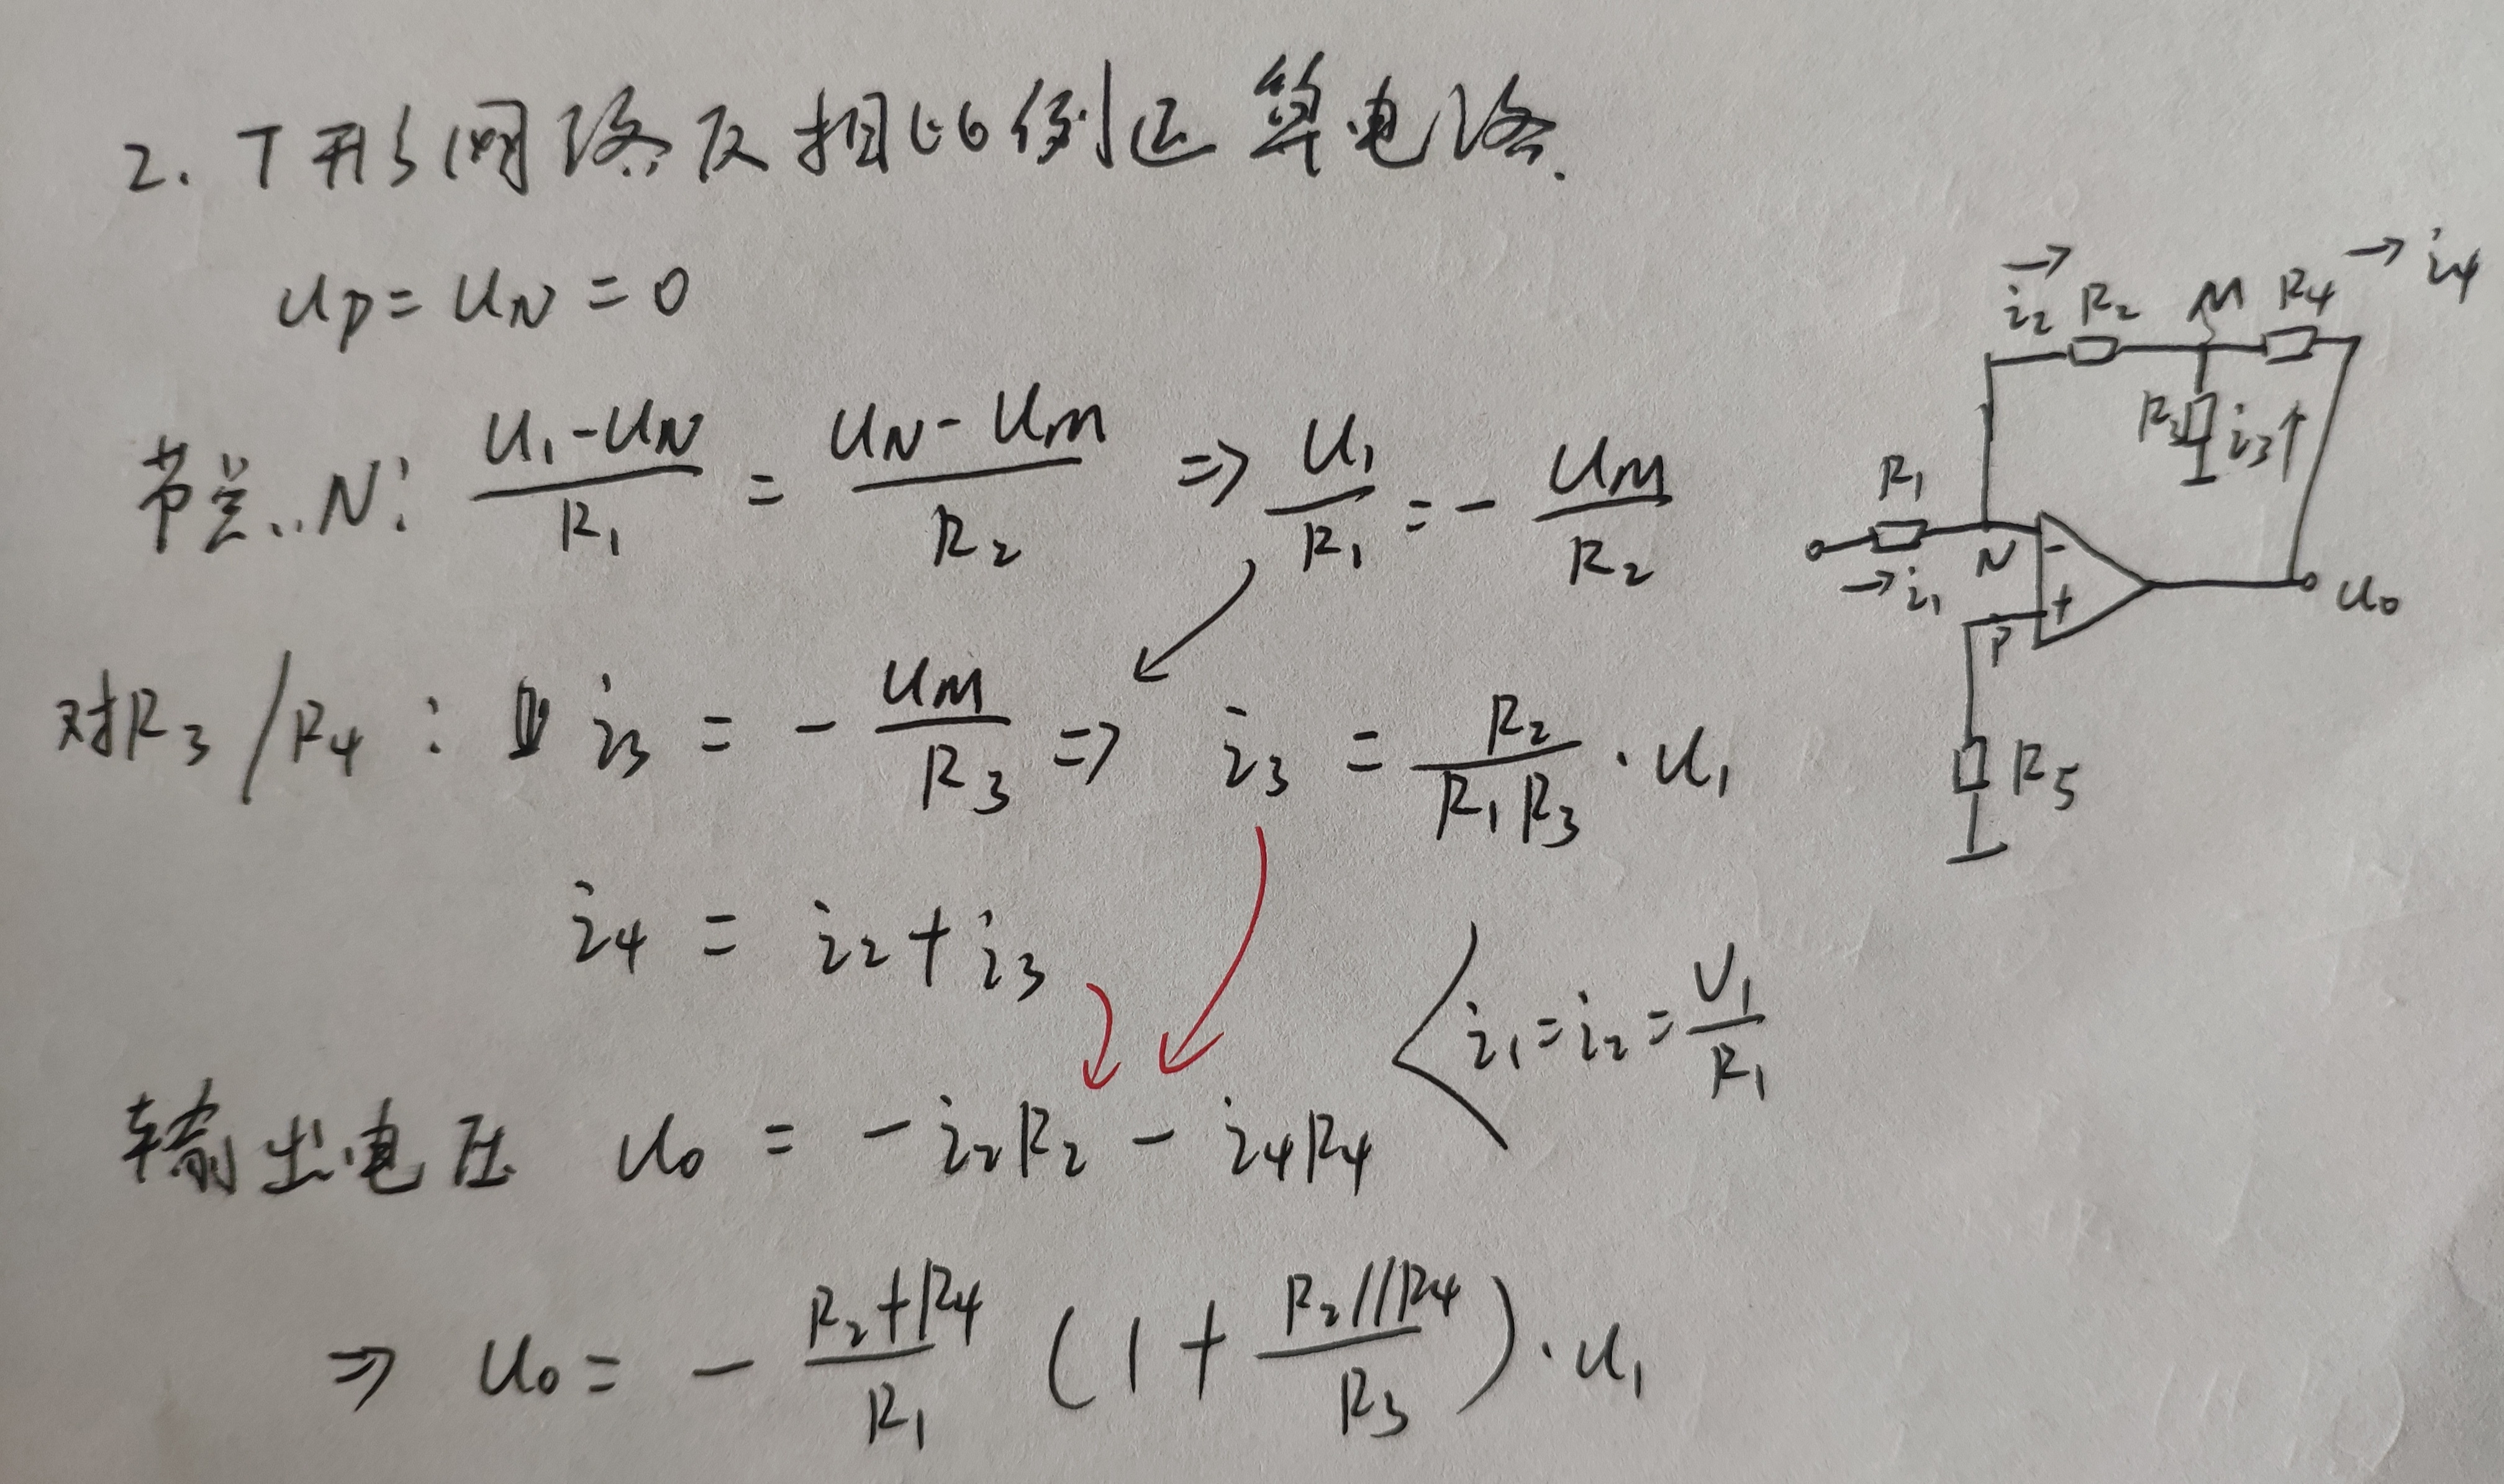 2. T形网络反相比例运算电路.
uP = uN = 0
节点N: (u1 - uN)/R1 = (uN - uM)/R2 ⇒ u1/R1 = - uM/R2
对R3/R4: i3 = - uM/R3 ⇒ i3 = R2/(R1R3) · u1
i4 = i2 + i3
i1 = i2 = U1/R1
输出电压 uo = - i2R2 - i4R4
⇒ uo = - (R2+R4)/R1 (1 + (R2//R4)/R3) · u1
→ i2 R2 M R4 → i4
R3 i3 ↑
R1
→ i1 N - uo
P +
R5